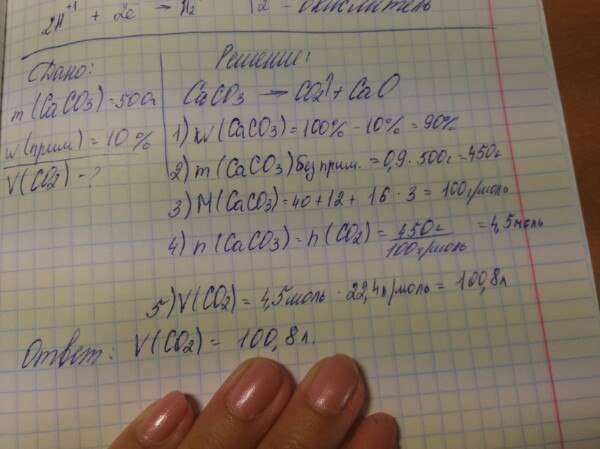 2H⁺¹ + 2e → H₂⁰ | 2 - окислитель
Дано:
m(CaCO3)=500г
w(прим)=10%
V(CO2) - ?
Решение:
CaCO3 → CO2↑ + CaO
1) w(CaCO3)=100%-10%=90%
2) m(CaCO3)без прим.=0,9·500г=450г
3) M(CaCO3)=40+12+16·3=100г/моль
4) n(CaCO3)=n(CO2)=450г/100г/моль=4,5моль
5) V(CO2)=4,5моль·22,4л/моль=100,8л
Ответ: V(CO2)= 100,8л.